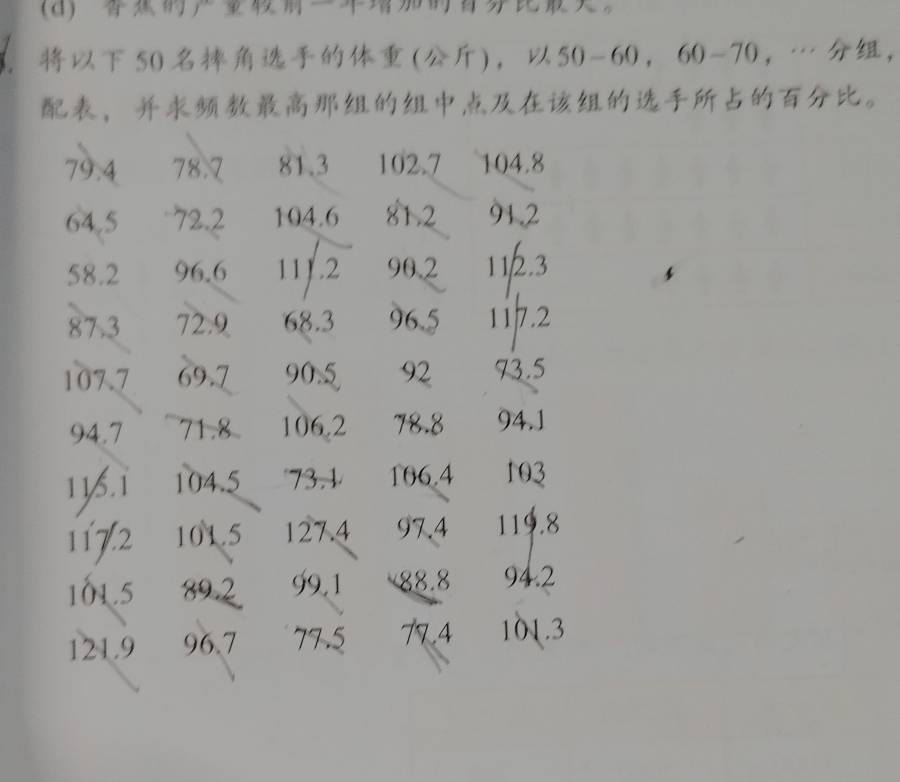 (d) 香蕉的产量较前一年增加的百分比最大。
将以下 50 名摔角选手的体重 (公斤)， 以 50－60， 60－70， … 分组，
配表， 并求频数最高那组的组中点及在该组的选手所占的百分比。
79.4 78.7 81.3 102.7 104.8
64.5 72.2 104.6 81.2 91.2
58.2 96.6 111.2 90.2 112.3
87.3 72.9 68.3 96.5 117.2
107.7 69.7 90.5 92 93.5
94.7 71.8 106.2 78.8 94.1
115.1 104.5 73.1 106.4 103
117.2 101.5 127.4 97.4 119.8
101.5 89.2 99.1 88.8 94.2
121.9 96.7 77.5 77.4 101.3